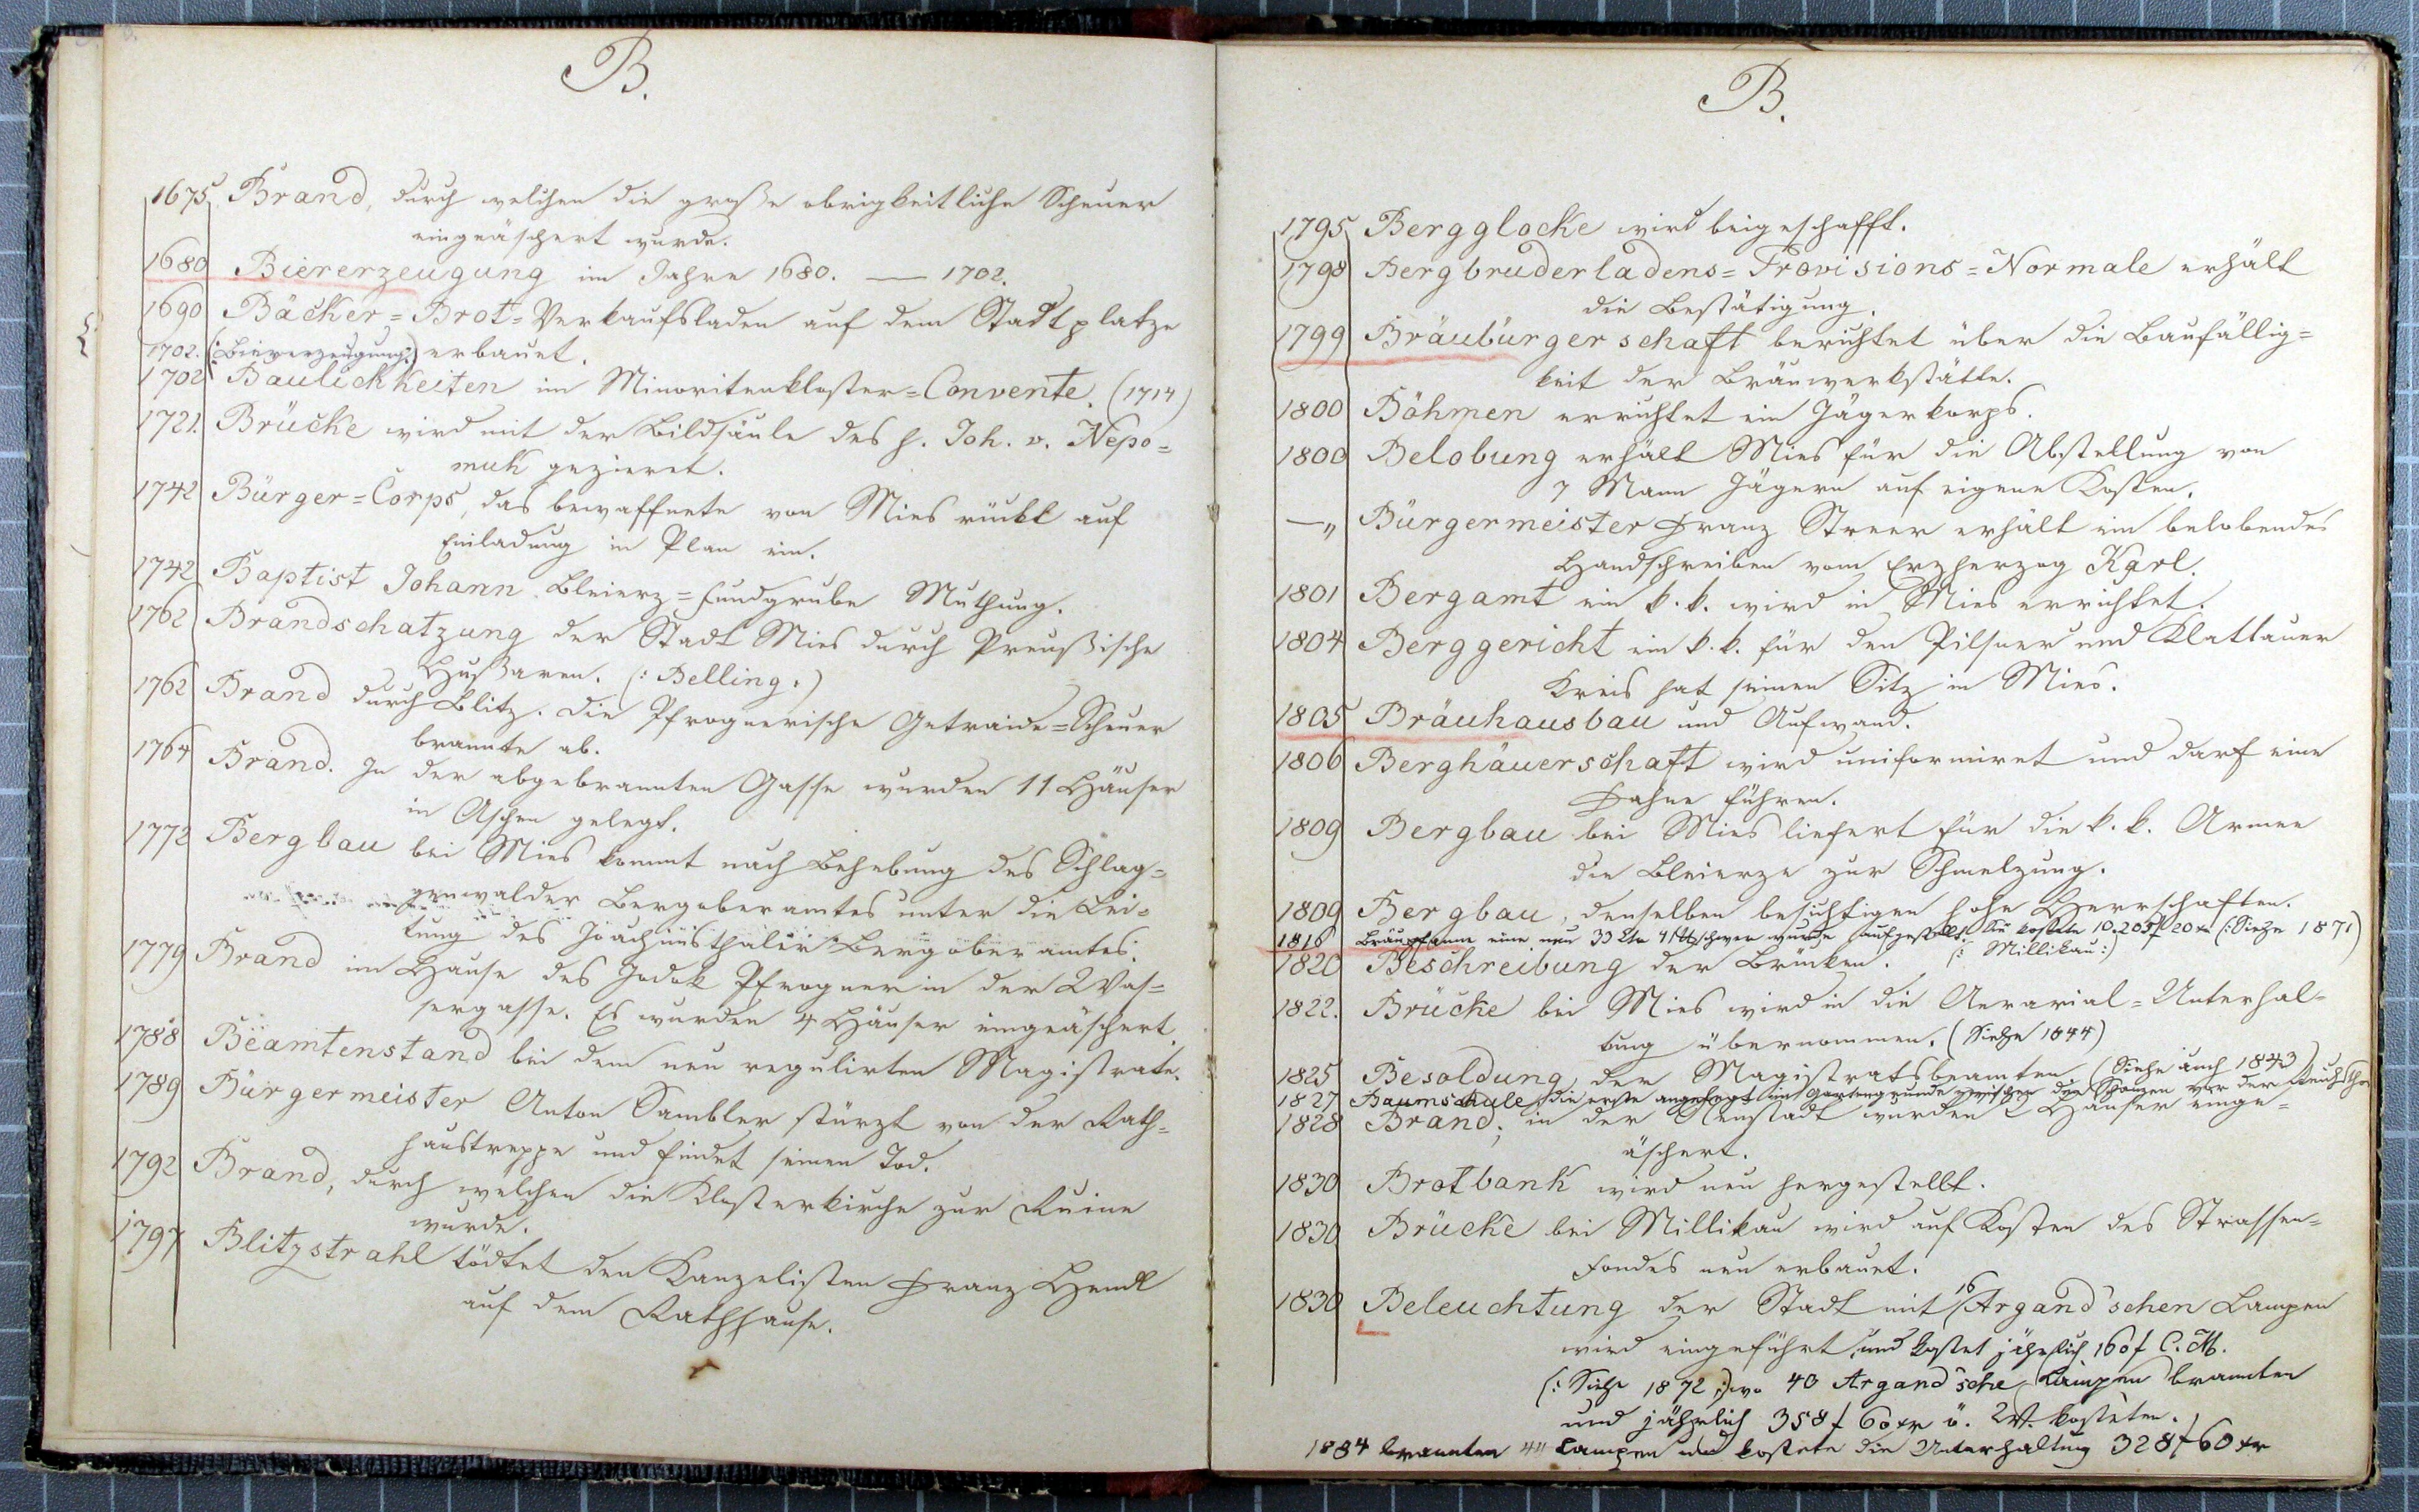 B.
1675 Brand, durch welchen die große obrigkeitliche Scheuer
eingeäschert wurde.
1680 Biererzeugung im Jahre 1680. — 1702.
1690 Bäcker=Brot=Verkaufsladen auf dem Stadtplatze
1702. (:Biererzeugung:) erbauet.
1702 Baulichkeiten im Minoritenkloster=Convente. (1714)
1721. Brücke wird mit der Bildsäule des h. Joh. v. Nepo=
muk gezieret.
1742 Bürger=Corps, das bewaffnete von Mies rückt auf
Einladung in Plan ein.
1742 Baptist Johann. Bleierz=Fundgrube Muthung.
1762 Brandschatzung der Stadt Mies durch Preußische
Hußaren. (: Belling.)
1762 Brand durch Blitz. Die Pfrognerische Getraide=Scheuer
brannte ab.
1764 Brand. In der abgebrannten Gasse wurden 11 Häuser
in Aschen gelegt.
1772 Bergbau bei Mies kommt nach Behebung des Schlag=
genwalder Bergoberamtes unter die Lei=
tung des Joachimsthaler Bergoberamtes.
1779 Brand im Hause des Jodok Pfrogner in der Was=
sergasse. Es wurden 4 Häuser eingeäschert.
1788 Beamtenstand bei dem neu regulirten Magistrate.
1789 Bürgermeister Anton Sambler stürzt von der Rath=
haustreppe und findet seinen Tod.
1792 Brand, durch welchen die Klosterkirche zur Ruine
wurde.
1797 Blitzstrahl tödtet den Kanzelisten Franz Hendl
auf dem Rathhause.
B.
1795 Bergglocke wird beigeschafft.
1798 Bergbruderladens=Provisions=Normale erhält
die Bestätigung.
1799 Bräubürgerschaft berichtet über die Baufällig=
keit der Bräuwerkstätte.
1800 Böhmen errichtet ein Jägerkorps.
1800 Belobung erhält Mies für die Abstellung von
7 Mann Jägern auf eigene Kosten.
—„ Bürgermeister Franz Streer erhält ein belobendes
Handschreiben vom Erzherzog Karl.
1801 Bergamt ein k. k. wird in Mies errichtet.
1804 Berggericht ein k. k. für den Pilsner und Klattauer
Kreis hat seinen Sitz in Mies.
1805 Bräuhausbau und Aufwand.
1806 Berghäuerschaft wird uniformiret und darf eine
Fahne führen.
1809 Bergbau bei Mies liefert für die k. k. Armee
die Bleierze zur Schmelzung.
1809 Bergbau, denselben besichtigen hohe Herrschaften.
1816 Bräupfanne eine neu 33 Ctr 41 ℔ schwer wurde aufgestellt. Sie kostete 10.205 f 20 xr (: Siehe 1871)
1820 Beschreibung der Brücken. (: Millikau :)
1822. Brücke bei Mies wird in die Aerarial=Unterhal=
tung übernommen. (Siehe 1844)
1825 Besoldung der Magistratsbeamten (Siehe auch 1843)
1827 Baumschule, die erste angelegt im Gartengrunde zwischen den Schanzen vor der
1828 Brand; in der Neustadt wurden 2 Häuser einge=
äschert.
1830 Brotbank wird neu hergestellt.
1830 Brücke bei Millikau wird auf Kosten des Strassen=
fondes neu erbauet.
1830 Beleuchtung der Stadt mit 16 Argand'schen Lampen
wird eingeführt, und kostet jährlich 160 f C. M.
(: Siehe 1872 ;) wo 40 Argand'sche Lampen brannten
und jährlich 358 f 60 xr ö. W. kosteten.
1884 brannten 411 Lampen und kostete die Unterhaltung 328 f 60 xr